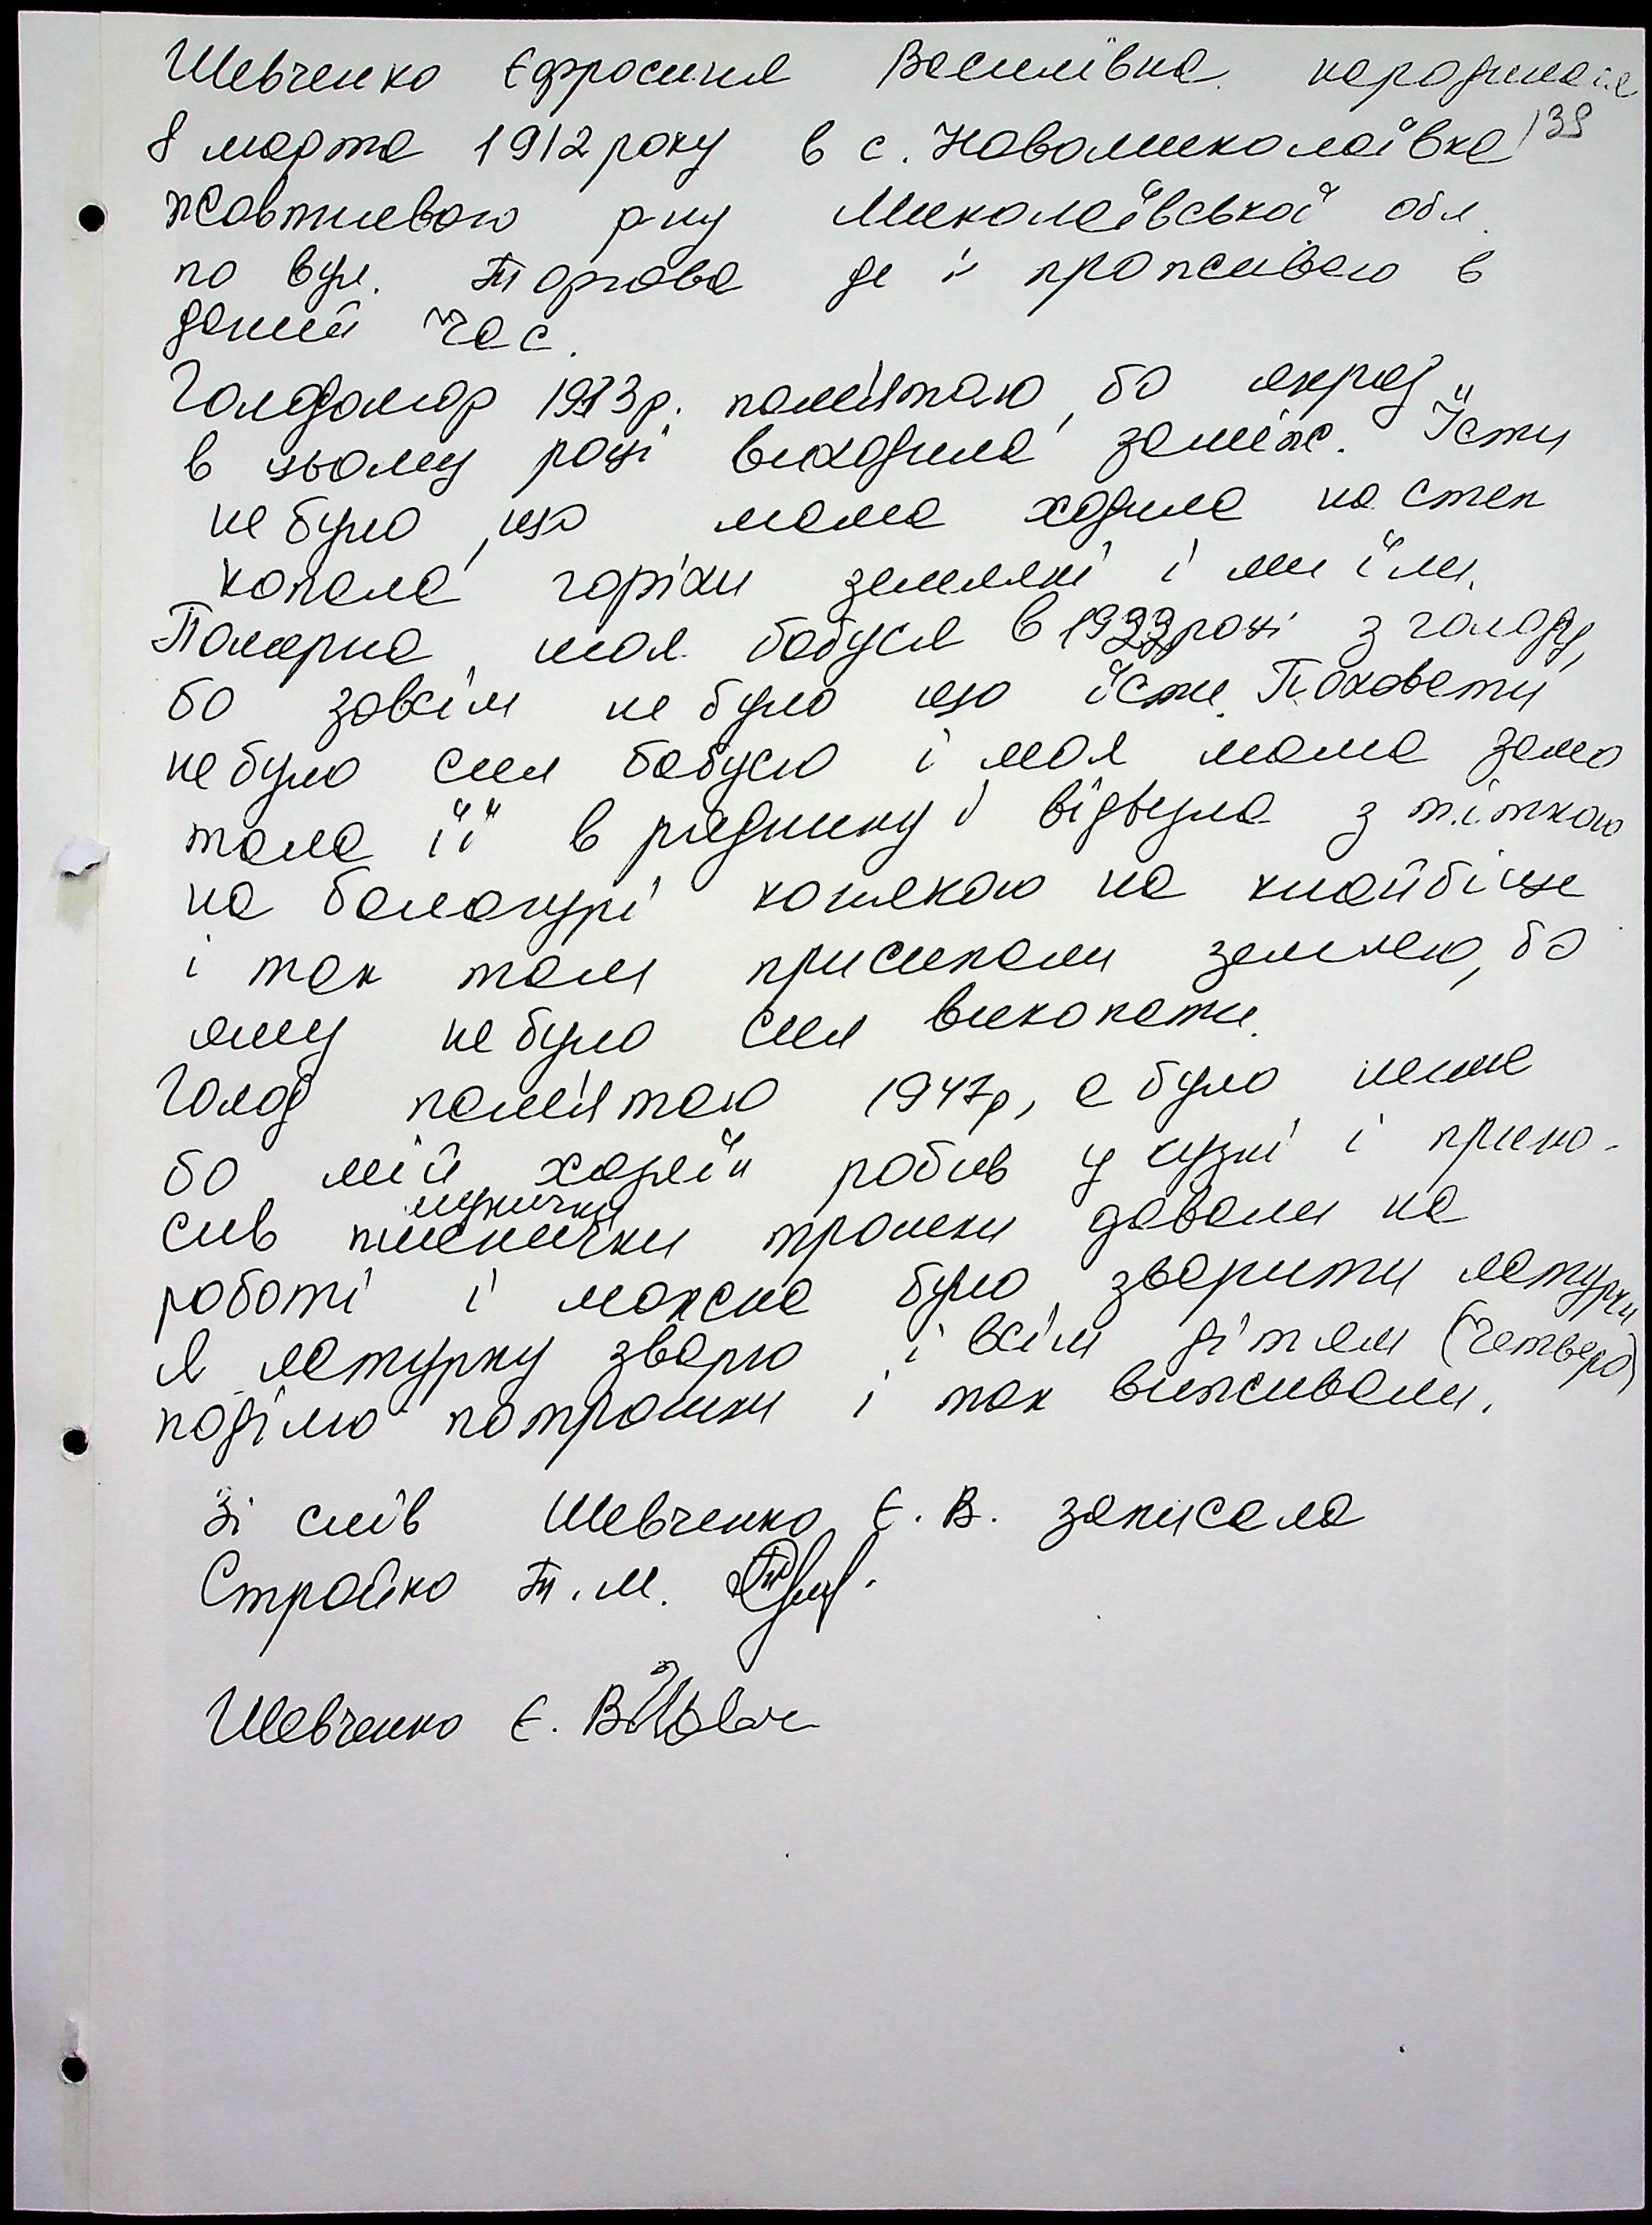 Шевченко Єфросинія Василівна народилася
8 марта 1912 року в с. Новомиколаївка
139
Жовтневого р-ну Миколаївської обл.
по вул. Торгова де і проживаю в
даний час.
Голодомор 1933 р. пам'ятаю, бо якраз
в цьому році виходила заміж. Їсти
не було, що мама ходила на степ
копала горіхи земляні і ми їли.
Померла моя бабуся в 1933 році з голоду,
бо зовсім не було що їсти. Поховати
не було сил бабусю і моя мама замо
тала її в ряднину і відвезла з тіткою
на балагурі конякою на кладбіще
і так там присипали землею, бо
яму не було сил викопати.
Голод пам'ятаю 1947р, а було легше
бо мій хазяїн робив у кузні і прино-
сив пшенички трошки давали на
мучички
роботі і можна було зварити латурки
Я латурку зварю і всім дітям (четверо)
поділю потрошки і так виживали.
Зі слів Шевченко Є. В. записала
Стройко Т. М.
Шевченко Є. В.